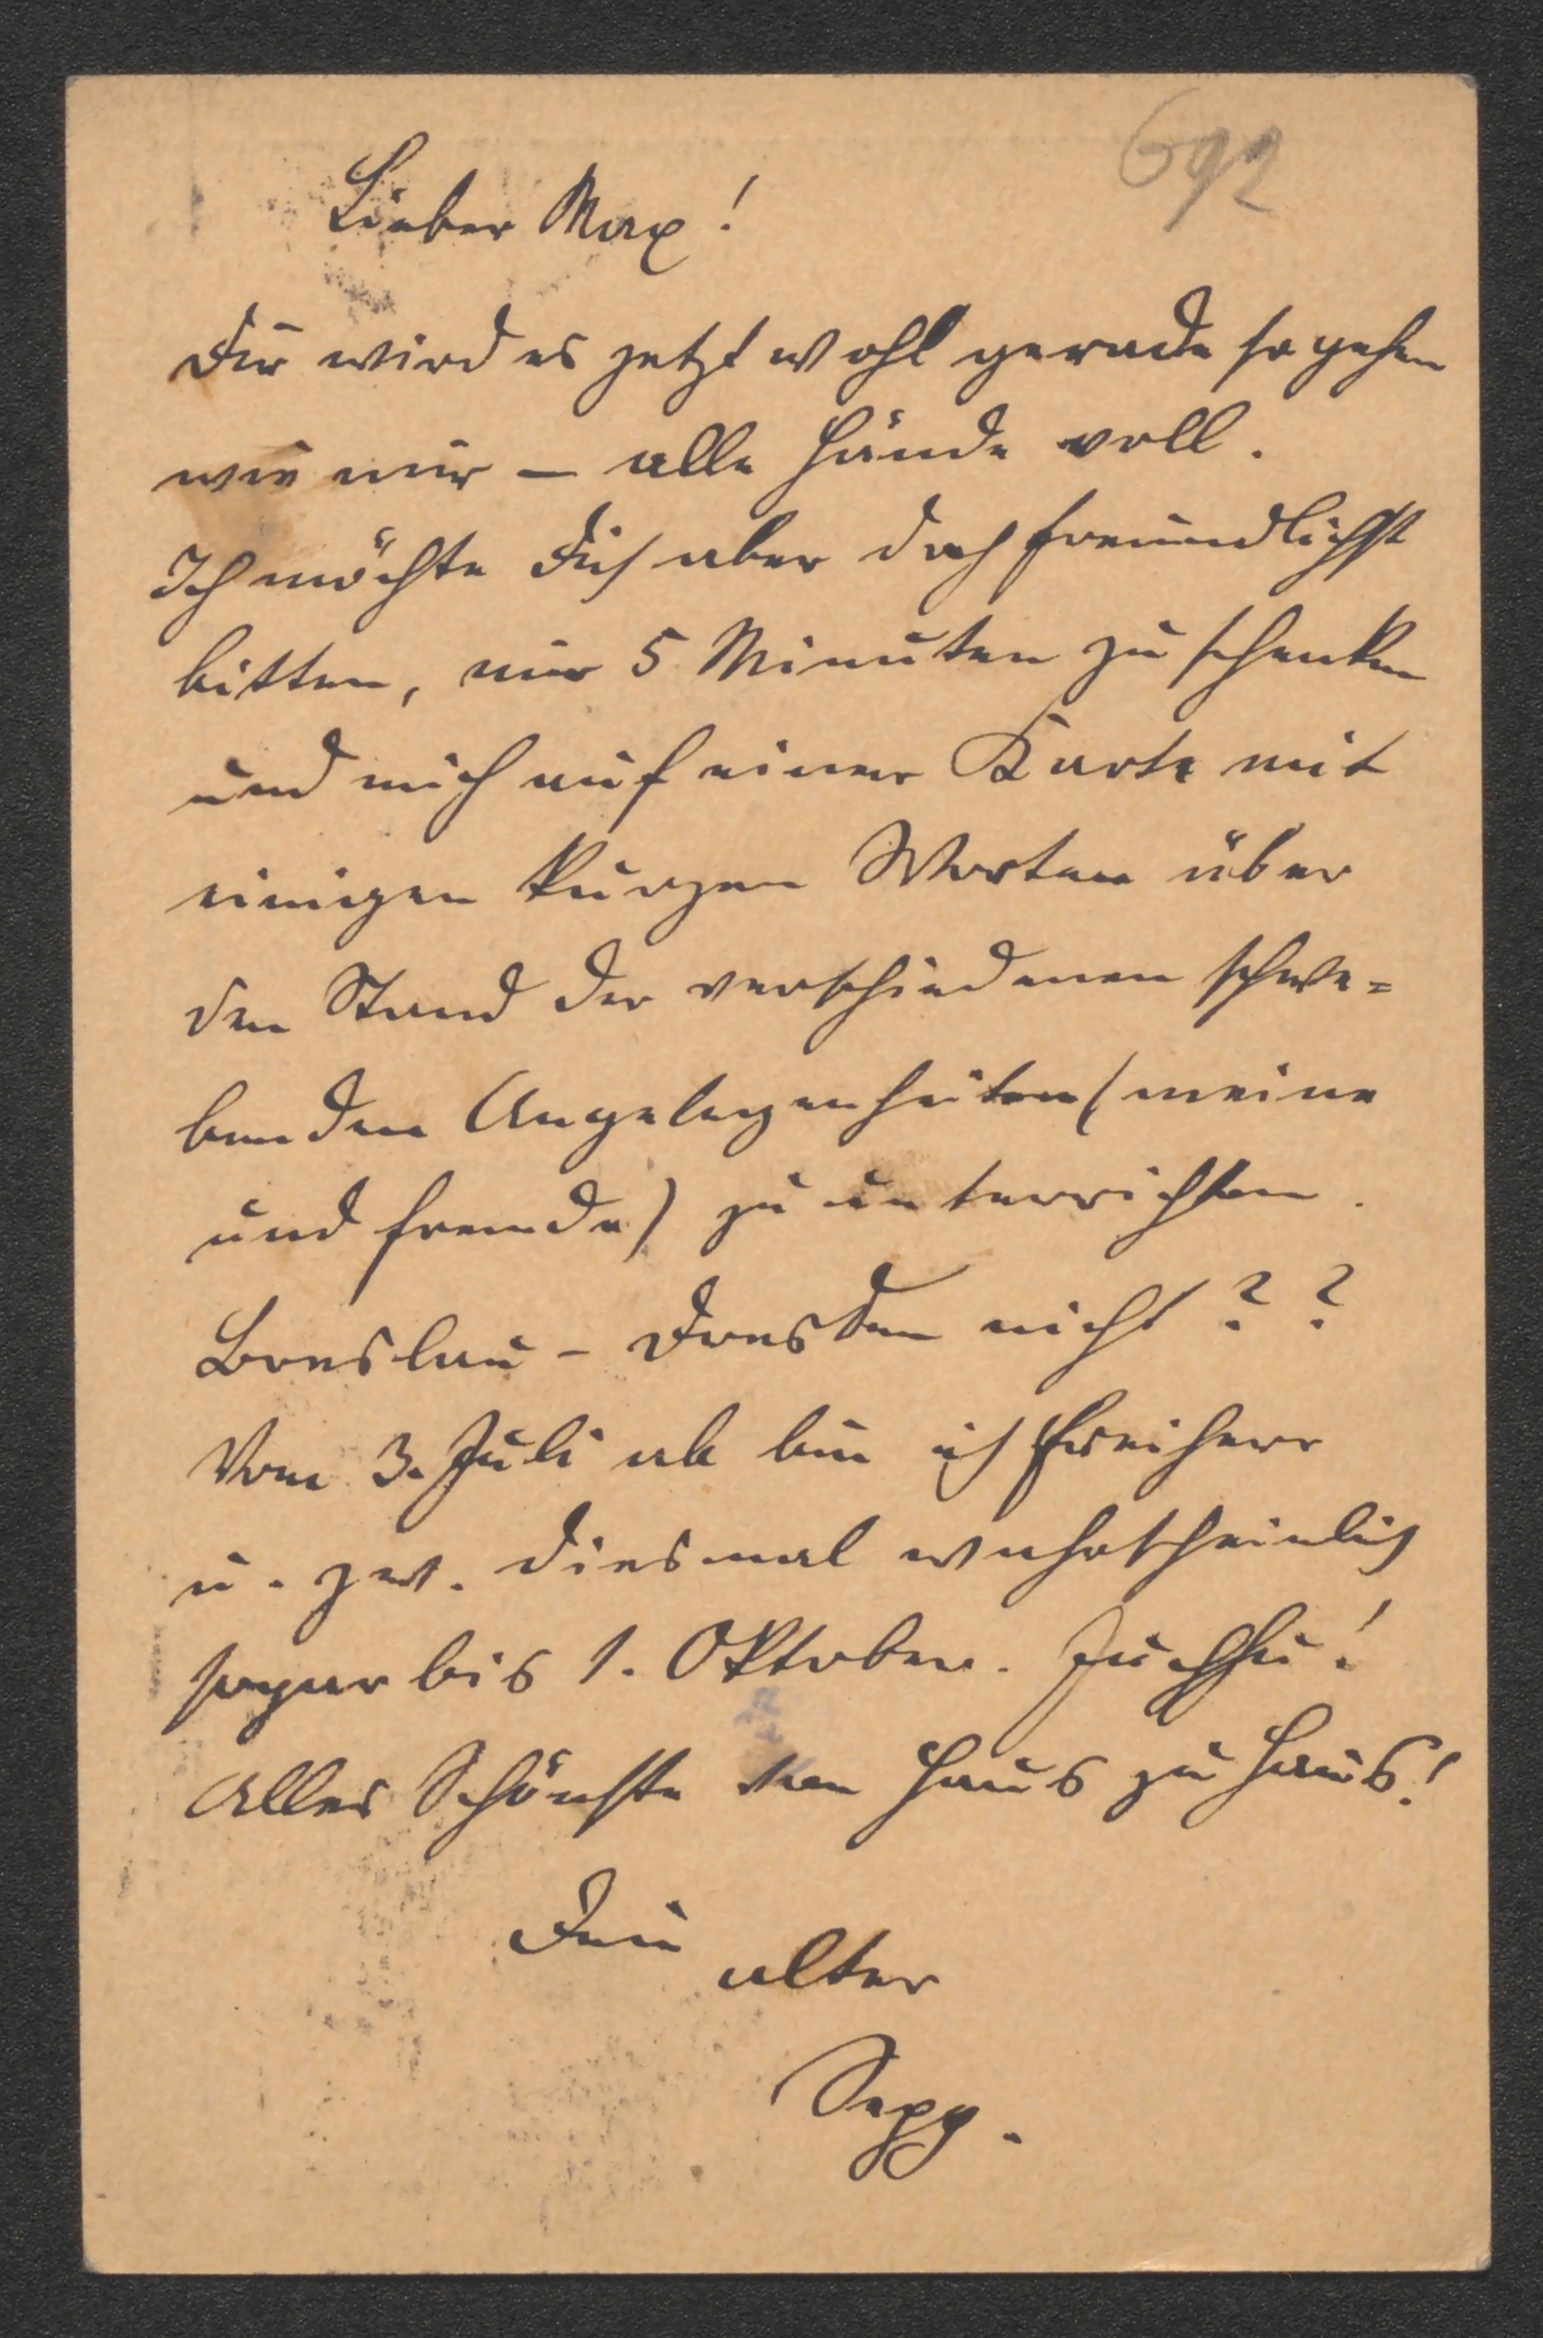 692
Lieber Max!
Dir wird es jetzt wohl gerade so gehen
wie mir – alle Hände voll.
Ich möchte Dich aber doch freundlichst
bitten, mir 5 Minuten zu schenken
und mich auf einer Karte mit
einigen kurzen Worten über
den Stand der verschiedenen schwe=
benden Angelegenheiten (meine
und fremde) zu unterrichten.
Breslau – Dresden nicht??
Vom 3. Juli ab bin ich Freiherr
u. zw. diesmal wahrscheinlich
sogar bis 1. Oktober. Juchhu!
Alles Schönste von Haus zu Haus!
Dein
alter
Sepp.